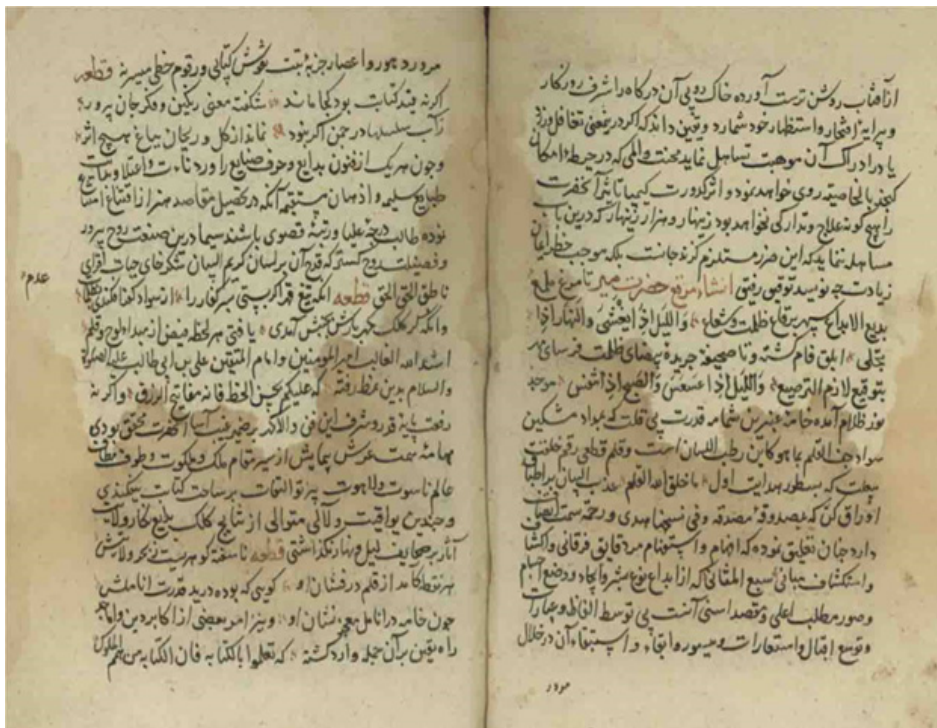 از آفتاب روشن تربت آورده خاک روبی آن درکاه را شرف روزکار
و پیرایهٔ افتخار و استظهار خود شمارد و یقین داند که اکر در معنی تغافل ورزد
یا در ادراک آن موهبت تساهل نماید محنت و المی که در حیطهٔ امکان
کنجد بالخاصیه روی خواهد نمود و اثر کدورت کیمیا تاثیر آنحضرت
را هیچ کونه علاج و تدارکی نخواهد بود زینهار و هزار زینهار که درین باب
مساهله ننماید که این ضرر مستلزم کزند جانست بلکه موجب خطر ایمان
زیادت چه نویسد توفیق رفیق انشاء مرقع حضرت میر تا مرقع ملمع
بدیع الابداع سپهر برقاع ظلمت و شعاع و اللیل اذا یغشی و النهار اذا
تجلی ابلق فام کشته و تا صحیفه جریدهٔ بیضای ظلمت فرسای مهر
بتوقیع لازم الترصیع و اللیل اذا عسعس و الصبح اذا تنفس موحد
نور ظلام آمده خامهٔ عنبرین شمامه قدرت بی قلت که بمداد مشکین
سواد جف القلم بما هو کاین رطب اللسان است و قلم قطعی رقم خلقت
که بسطور هدایت اول ما خلق الله القلم عذب البیان بر اطباق
اوراق کن که مصدوقه مصدقه و فی نسختها هدی و رحمه سمت
دارد چنان تعلیق نموده که افهام و استفهام مر دقایق فرقانی و
و استکشاف مبانی سبع المثانی که از ابداع نوع بشر و ایجاد و وضع اجسام
و صور مطلب اعلی و مقصد اسنی آنست بی توسط الفاظ و عبارات
و توسع اقبال و استعارات و میسور و ابقاء و استبقاء آن در خلال
مرور
مرور دهور و اعصار جز به ثبت نقوش کتابی و رقوم خطی میسر نه قطعه
اکر نه قید کتابت بود کجا ماند شکفت معنی رنکین و فکر جان پرور
ز آب سلسلها در چمن اکر نبود نماند از کل و ریحان بباغ هیچ اثر
و چون هر یک از فنون بدایع و حرف صنایع را ورد
طبایع سلیمه و اذهان مستقیمه آنکه در تحصیل مقاصد هنر از
نموده طالب درجهٔ علیا و رتبهٔ قصوی باشند سیما درین صنعت روح پرور
و فضیلت روح کستر که قدح آن بر لسان کریم البیان شکرخای حیات افزای
ناطق الحق الحق قطعه آنکه تیغ قهر اکر بستی سر کفار را از سواد کفر
و آنکه کر کلک کهر بارش بجنبش آمدی یافتی هر لحظه فیض از مبداء لوح و قلم
عدم
اسد الله الغالب امیر المومنین و امام المتقین علی بن ابی طالب علیه الصلوة
و السلام بدین نمط رفته که علیکم بحسن الخط فانه مفاتیح الرزق و اکر نه
رفعت پایهٔ قدر و شرف این فن والاکهر بر ضمیر غیب آسا آنحضرت محقق بودی
بهامهٔ همت عرش پیمایش از سیر تمام ملک و ملکوت و طوف مطاف
عالم ناسوت و لاهوت پرتو التفات بر ساحت کتابت نیفکندی
و چندین یواقیت و لآلی متوالی از نتایج کلک بلیغ نکار ولایت
آثار بر صحایف لیل و نهار نکذاشتی قطعه ناسفته کوهریست ز بحر ولایتش
هر نقطه کامد از قلم درفشان او کویی که بوده در ید قدرت اناملش
چون خامه در انامل معجز نشان او و نیز امر بعضی از اکابر دین و
راه یقین بر آن جمله وارد کشته که تعلموا بالکتابه فان الکتابه من